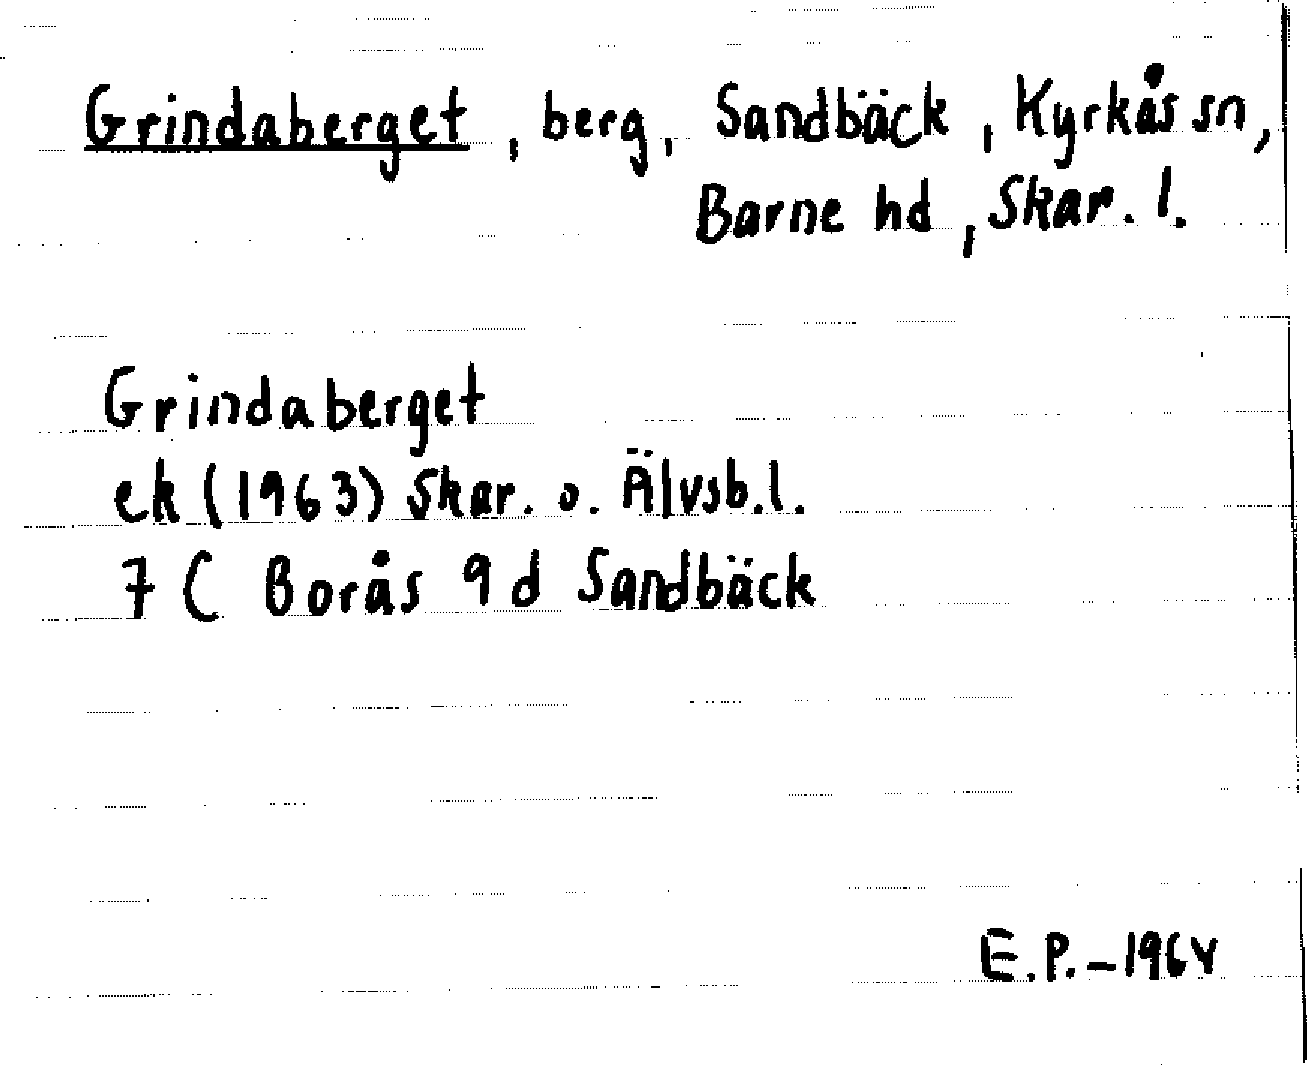 Grindaberget, berg, Sandbäck, Kyrkås sn,
Barne hd, Skar. l.
Grindaberget
ek (1963) Skar. o. Älvsb.l.
7 C Borås 9 d Sandbäck
E.P. - 1964